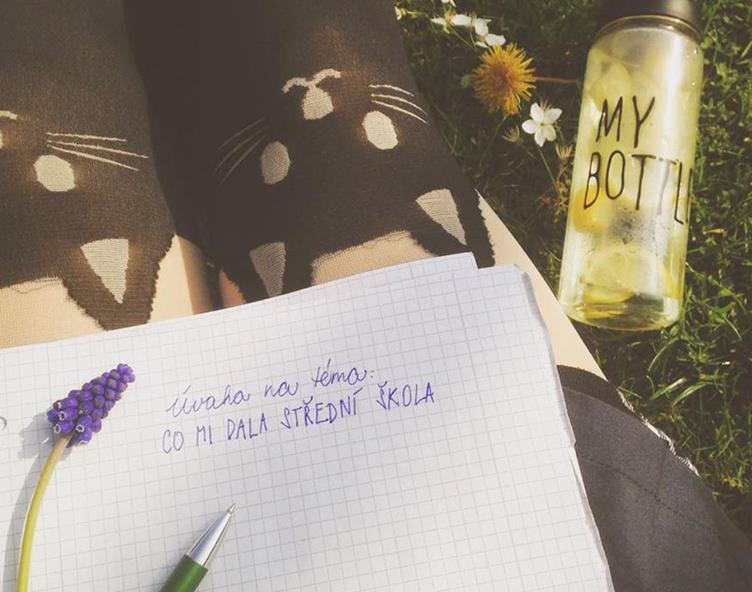 MY
BOTTL
Úvaha na téma:
CO MI DALA STŘEDNÍ ŠKOLA